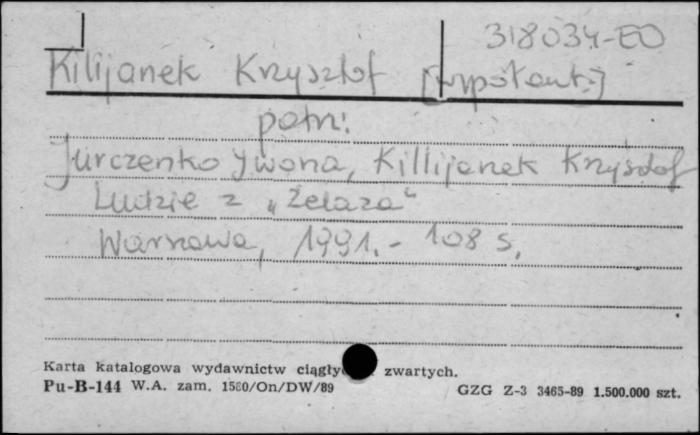 318034-EO
Kilijanek Krzysztof [współaut.]
patrz:
Jurczenko Iwona, Killijanek Krzysztof
Ludzie z „Żelaza“
Warszawa, 1991. - 108 s.
Karta katalogowa wydawnictw ciągły zwartych.
Pu-B-144 W.A. zam. 1580/On/DW/89 GZG Z-3 3465-89 1.500.000 szt.